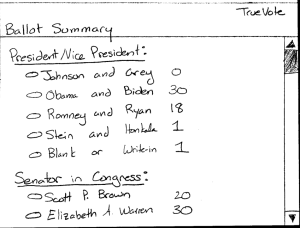 TrueVote
Ballot Summary
President/Vice President:
Johnson and Grey 0
Obama and Biden 30
Romney and Ryan 18
Stein and Honkala 1
Blank or Write-in 1
Senator in Congress:
Scott P. Brown 20
Elizabeth A. Warren 30